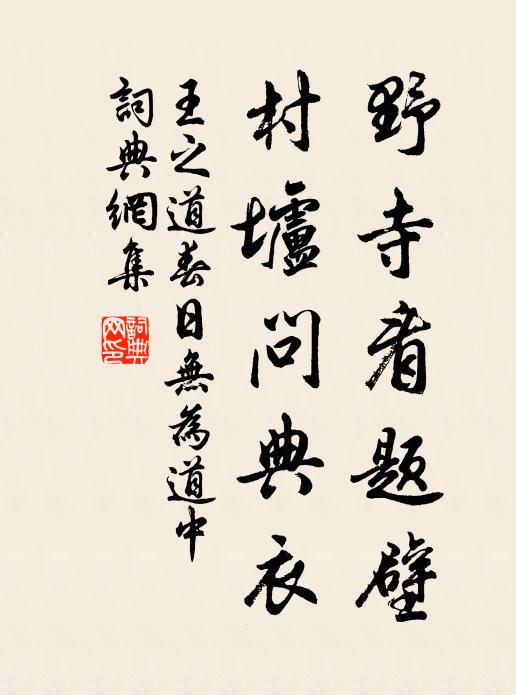 野寺看題壁
村壚問典衣
王之道春日無為道中
詞典網集
詞典网印